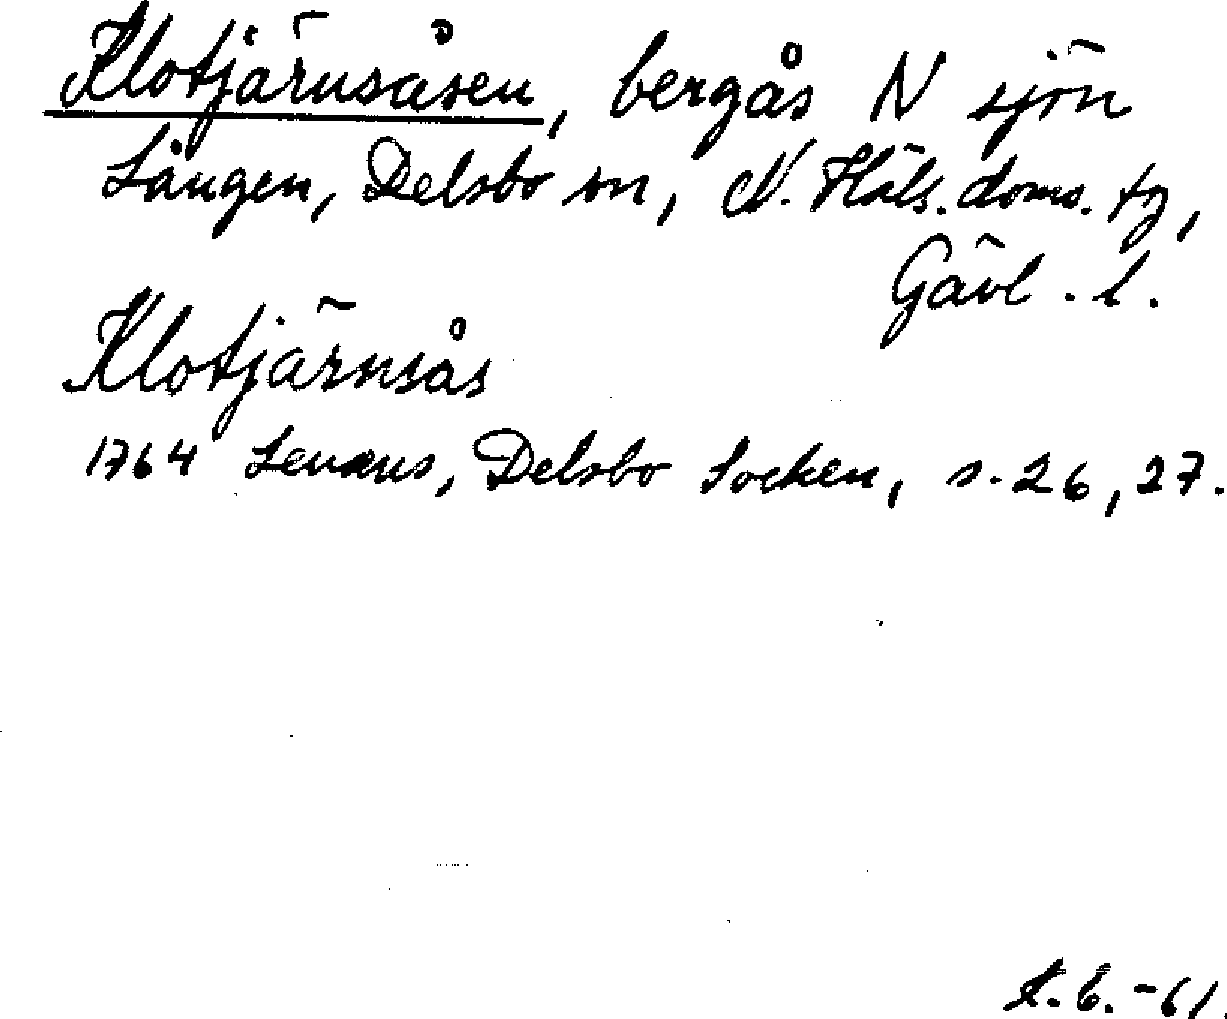 Klotjärnsåsen, bergås N sjön
Lången, Delsbo sn, N. Häls. doms. tg,
Gävl. l.
Klotjärnsås
1764 Lenæus, Delsbo Socken, s. 26, 27.
-61.